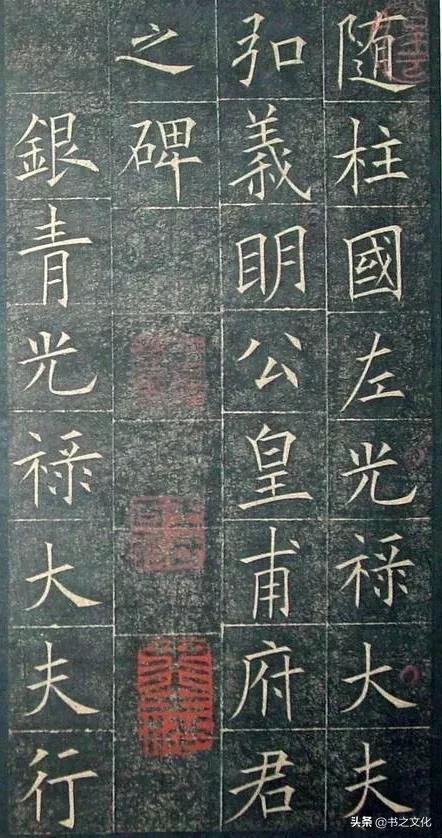 随柱國左光禄大夫
弘義明公皇甫府君
之碑
銀青光禄大夫行
头条 @书之文化